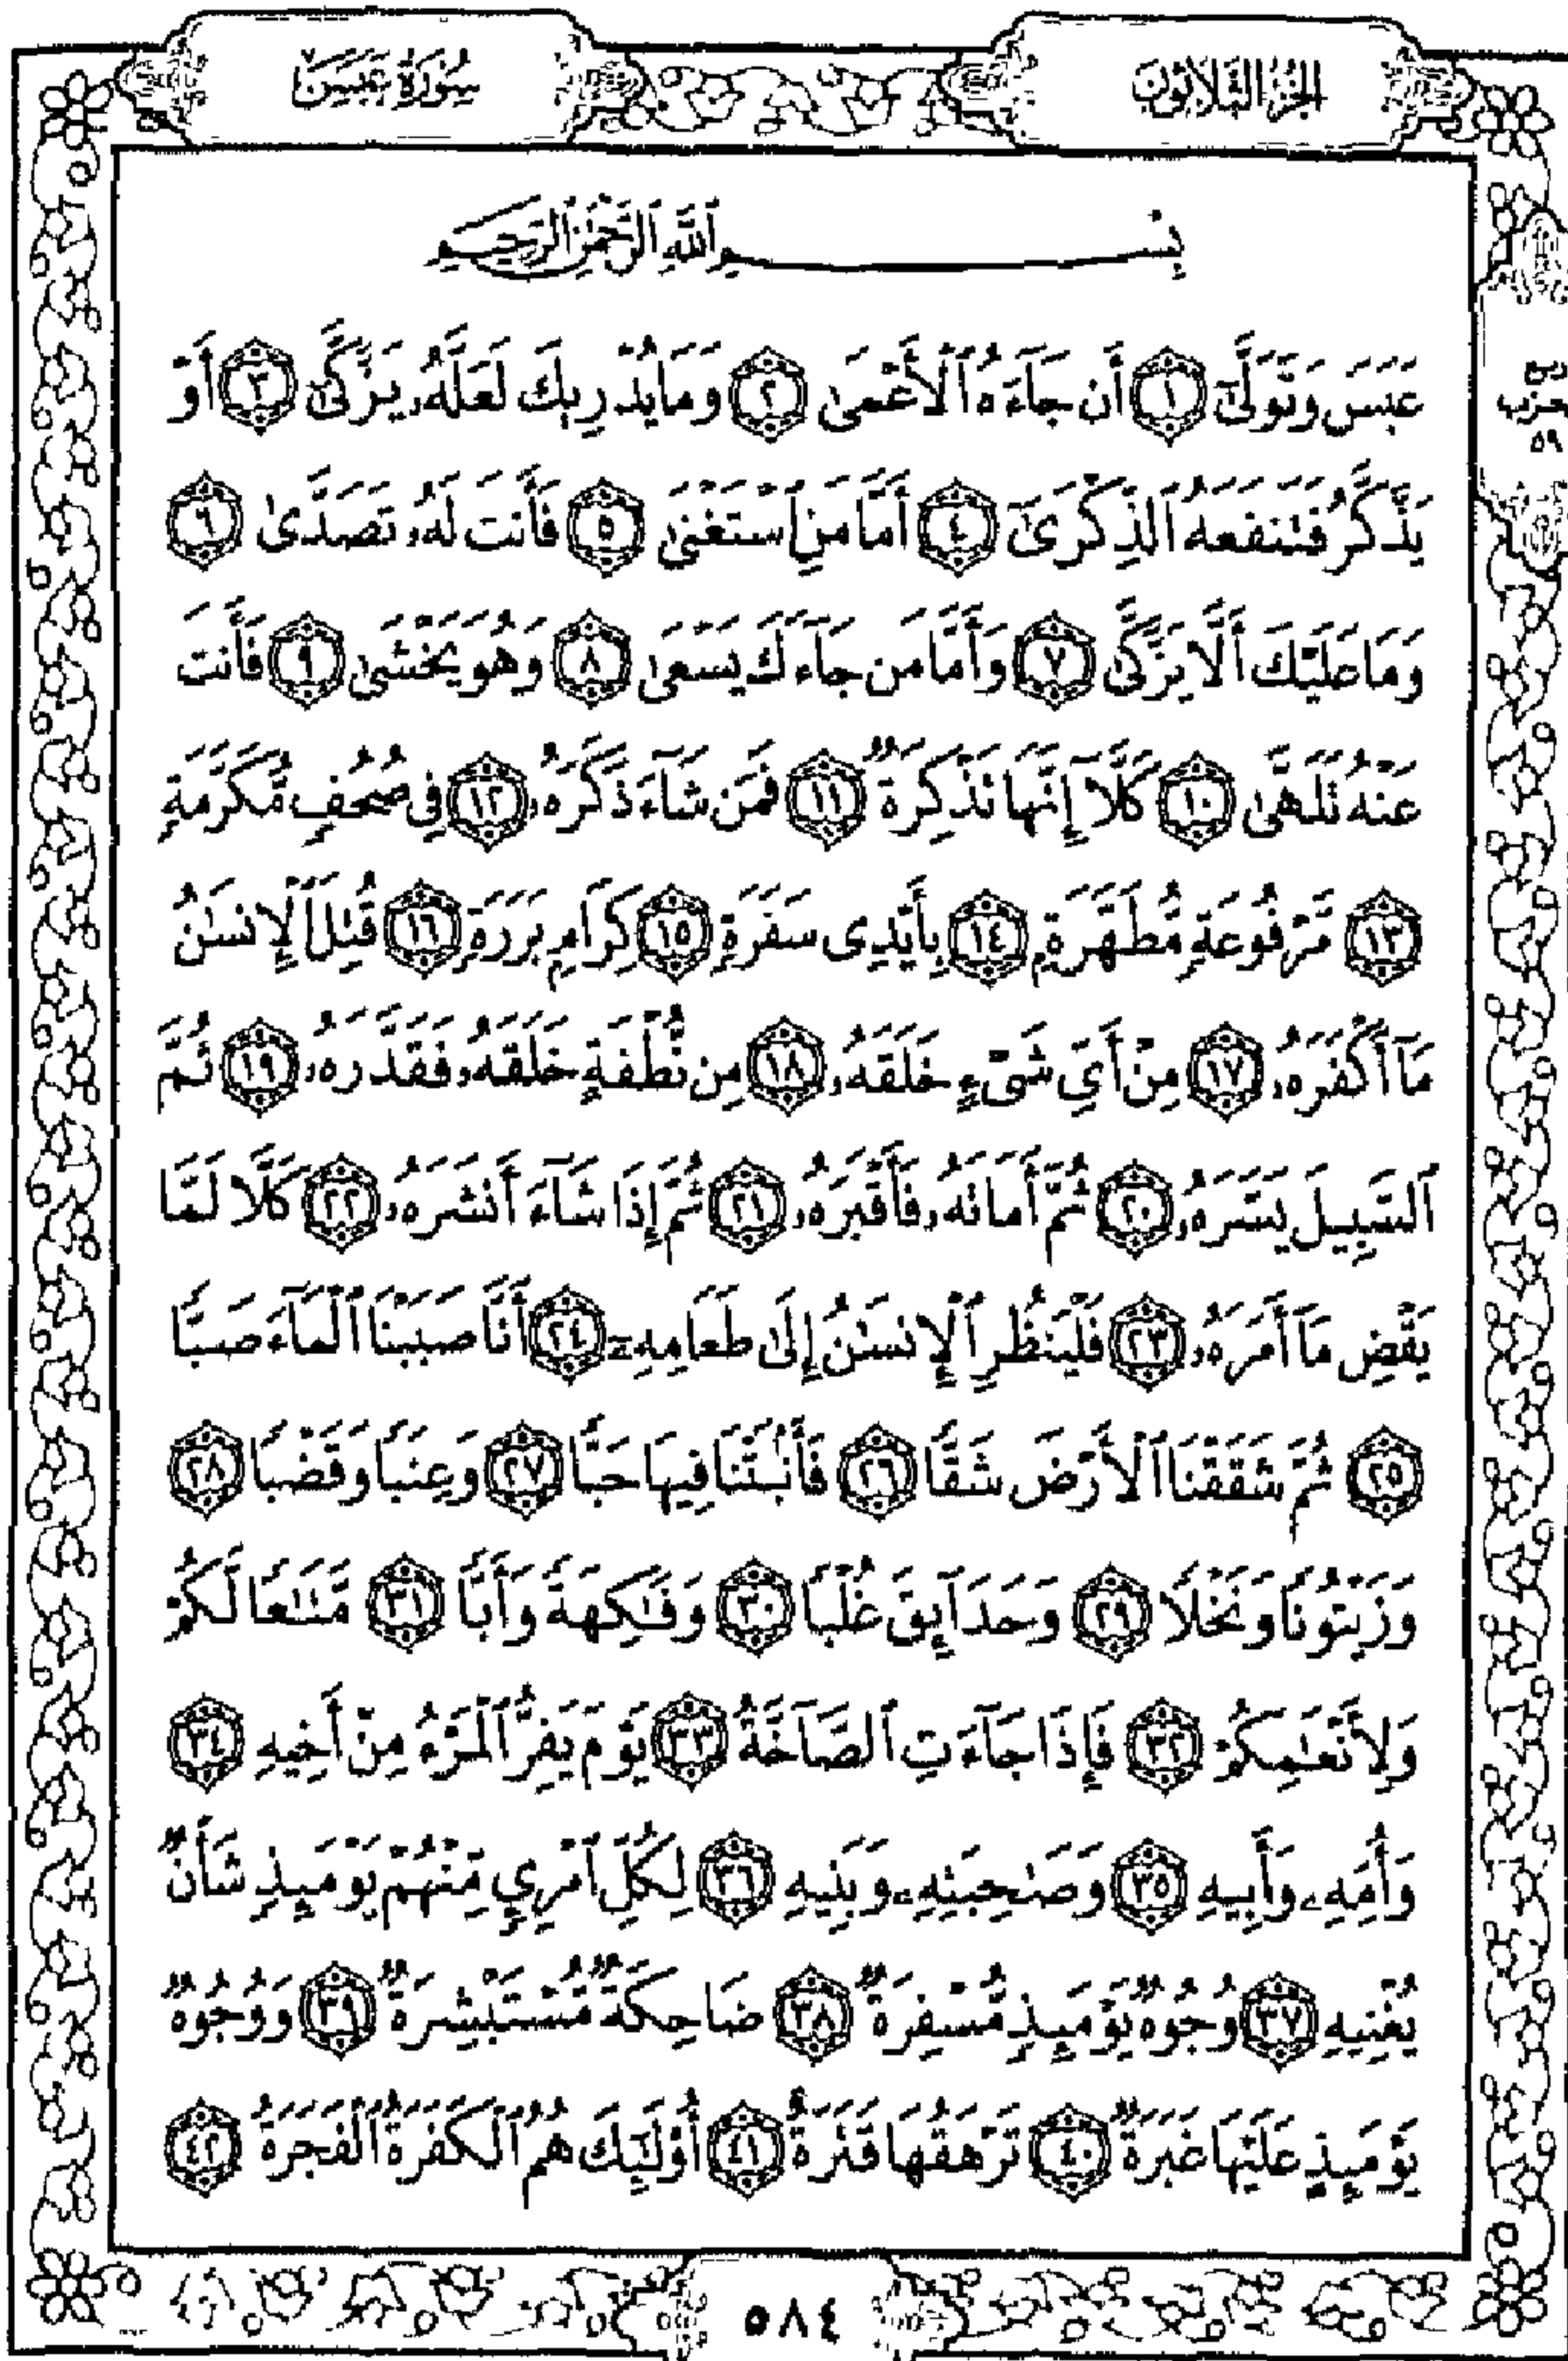 الجزء الثلاثون
سورة عبس
بِسْمِ ٱللَّهِ ٱلرَّحْمَٰنِ ٱلرَّحِيمِ
عَبَسَ وَتَوَلَّىٰٓ ١ أَن جَآءَهُ ٱلْأَعْمَىٰ ٢ وَمَا يُدْرِيكَ لَعَلَّهُۥ يَزَّكَّىٰٓ ٣ أَوْ
يَذَّكَّرُ فَتَنفَعَهُ ٱلذِّكْرَىٰٓ ٤ أَمَّا مَنِ ٱسْتَغْنَىٰ ٥ فَأَنتَ لَهُۥ تَصَدَّىٰ ٦
وَمَا عَلَيْكَ أَلَّا يَزَّكَّىٰ ٧ وَأَمَّا مَن جَآءَكَ يَسْعَىٰ ٨ وَهُوَ يَخْشَىٰ ٩ فَأَنتَ
عَنْهُ تَلَهَّىٰ ١٠ كَلَّآ إِنَّهَا تَذْكِرَةٌ ١١ فَمَن شَآءَ ذَكَرَهُۥ ١٢ فِى صُحُفٍ مُّكَرَّمَةٍ
١٣ مَّرْفُوعَةٍ مُّطَهَّرَةٍۭ ١٤ بِأَيْدِى سَفَرَةٍ ١٥ كِرَامٍۭ بَرَرَةٍ ١٦ قُتِلَ ٱلْإِنسَٰنُ
مَآ أَكْفَرَهُۥ ١٧ مِنْ أَىِّ شَىْءٍ خَلَقَهُۥ ١٨ مِن نُّطْفَةٍ خَلَقَهُۥ فَقَدَّرَهُۥ ١٩ ثُمَّ
ٱلسَّبِيلَ يَسَّرَهُۥ ٢٠ ثُمَّ أَمَاتَهُۥ فَأَقْبَرَهُۥ ٢١ ثُمَّ إِذَا شَآءَ أَنشَرَهُۥ ٢٢ كَلَّا لَمَّا
يَقْضِ مَآ أَمَرَهُۥ ٢٣ فَلْيَنظُرِ ٱلْإِنسَٰنُ إِلَىٰ طَعَامِهِۦٓ ٢٤ أَنَّا صَبَبْنَا ٱلْمَآءَ صَبًّا
٢٥ ثُمَّ شَقَقْنَا ٱلْأَرْضَ شَقًّا ٢٦ فَأَنۢبَتْنَا فِيهَا حَبًّا ٢٧ وَعِنَبًا وَقَضْبًا ٢٨
وَزَيْتُونًا وَنَخْلًا ٢٩ وَحَدَآئِقَ غُلْبًا ٣٠ وَفَٰكِهَةً وَأَبًّا ٣١ مَّتَٰعًا لَّكُمْ
وَلِأَنْعَٰمِكُمْ ٣٢ فَإِذَا جَآءَتِ ٱلصَّآخَّةُ ٣٣ يَوْمَ يَفِرُّ ٱلْمَرْءُ مِنْ أَخِيهِ ٣٤
وَأُمِّهِۦ وَأَبِيهِ ٣٥ وَصَٰحِبَتِهِۦ وَبَنِيهِ ٣٦ لِكُلِّ ٱمْرِئٍ مِّنْهُمْ يَوْمَئِذٍ شَأْنٌ
يُغْنِيهِ ٣٧ وُجُوهٌ يَوْمَئِذٍ مُّسْفِرَةٌ ٣٨ ضَاحِكَةٌ مُّسْتَبْشِرَةٌ ٣٩ وَوُجُوهٌ
يَوْمَئِذٍ عَلَيْهَا غَبَرَةٌ ٤٠ تَرْهَقُهَا قَتَرَةٌ ٤١ أُو۟لَٰٓئِكَ هُمُ ٱلْكَفَرَةُ ٱلْفَجَرَةُ ٤٢
حزب
٥٩
٥٨٤